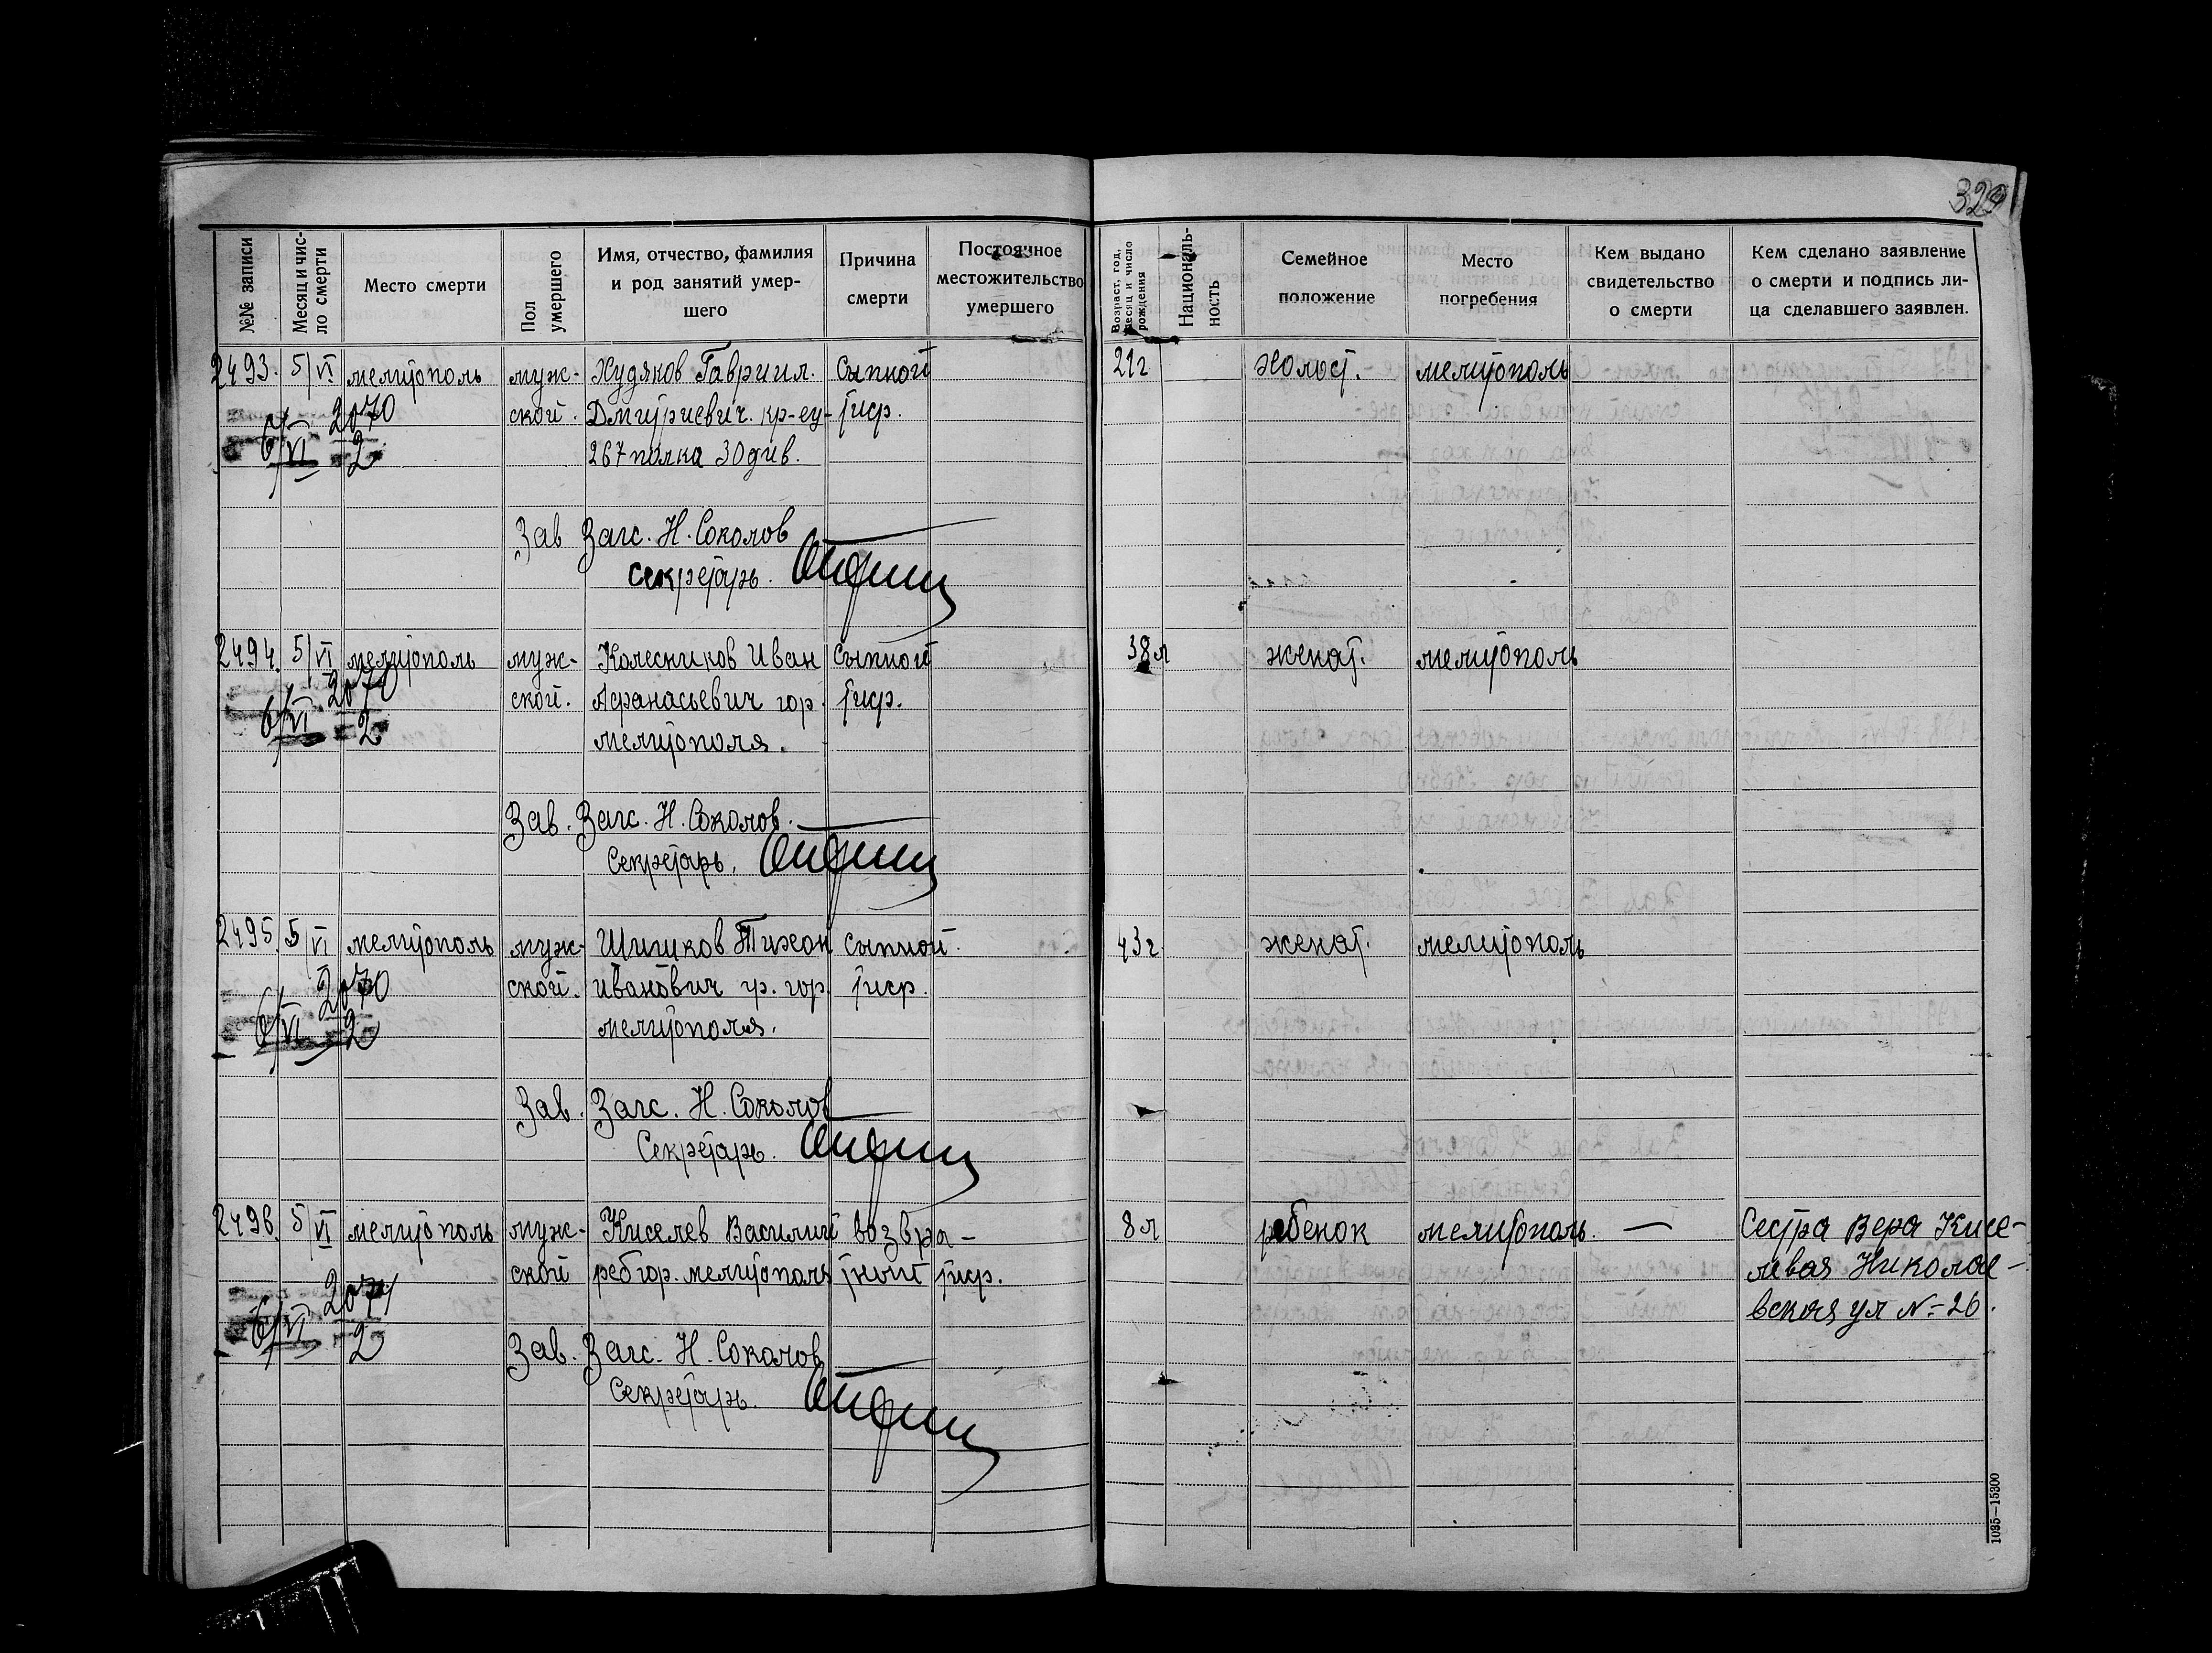 329
№№ записи
Месяц и чис-
ло смерти
Место смерти
Пол
умершего
Имя, отчество, фамилия
и род занятий умер-
шего
Причина
смерти
Постоянное
местожительство
умершего
Возраст, год,
месяц и число
рождения
Националь-
ность
Семейное
положение
Место
погребения
Кем выдано
свидетельство
о смерти
Кем сделано заявление
о смерти и подпись ли-
ца сделавшего заявлен.
2493. 5/VI мелитополь муж- Худяков Гавриил. Сыпной 21г холост. мелитополь
6/VI 2070 ской. Дмитриевич. кр-ец- тиф.
2 267 полка 30 див.
Зав Загс. Н. Соколов
секретарь.
2494. 5/VI мелитополь муж- Колесников Иван Сыпной 38л женат. мелитополь
6/VI 2070 ской. Афанасьевич гор. тиф.
2 мелитополя.
Зав. Загс. Н. Соколов.
Секретарь.
2495. 5/VI мелитополь муж- Шишков Тихон Сыпной. 43г женат. мелитополь
6/VI 2070 ской. Иванович гр. гор. тиф.
2 мелитополя.
Зав. Загс. Н. Соколов
Секретарь.
2496. 5/VI мелитополь муж- Киселев Василий возвра- 8л ребенок мелитополь. — Сестра Вера Кисе-
6/VI 2071 ской реб гор. мелитополя тный тиф. левая Николае-
2 вская ул №-26.
Зав. Загс. Н. Соколов
Секретарь.
1035—15300